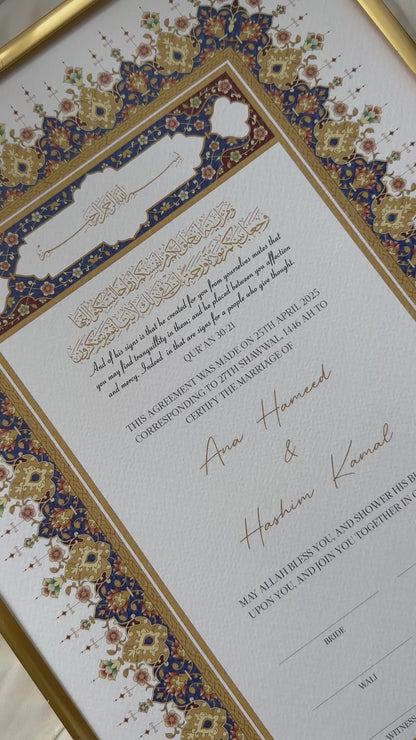 بسم الله الرحمن الرحيم
And of his signs is that he created for you from yourselves mates that
you may find tranquility in them; and he placed between you affection
and mercy. Indeed in that are signs for a people who give thought.
QUR'AN 30:21
THIS AGREEMENT WAS MADE ON 25TH APRIL 2025
CORRESPONDING TO 27TH SHAWWAL, 1446 AH TO
CERTIFY THE MARRIAGE OF
Ana Hameed
&
Hashim Kamal
MAY ALLAH BLESS YOU, AND SHOWER HIS
UPON YOU, AND JOIN YOU TOGETHER IN
BRIDE
WALI
WITNESS